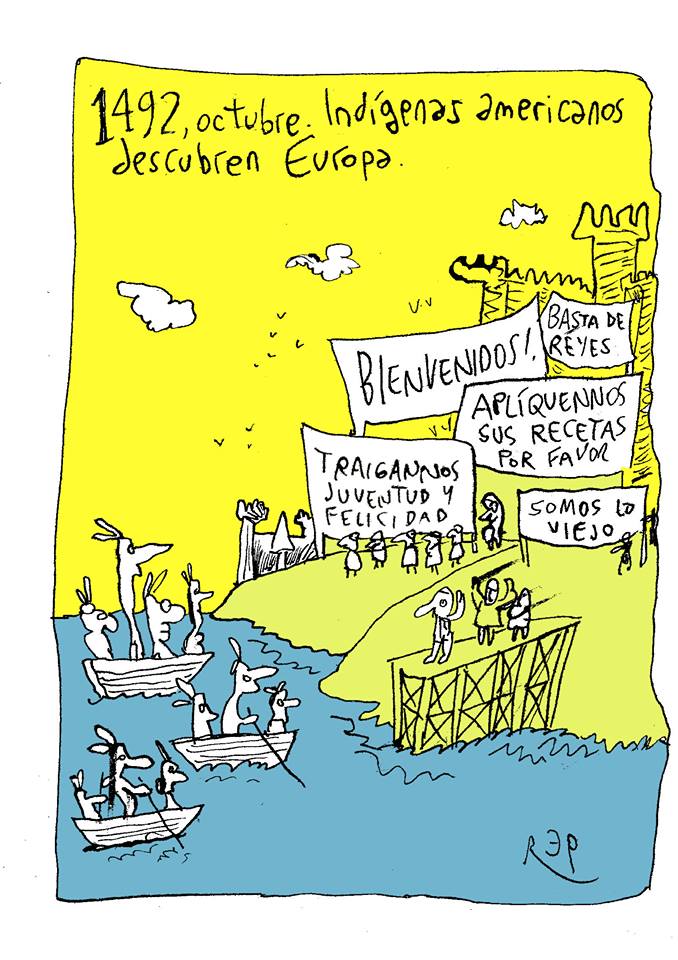 1492, octubre. Indígenas americanos
descubren Europa.
BASTA DE
REYES
BIENVENIDOS!
APLÍQUENNOS
SUS RECETAS
POR FAVOR
TRAIGANNOS
JUVENTUD Y
FELICIDAD
SOMOS LO
VIEJO
REP